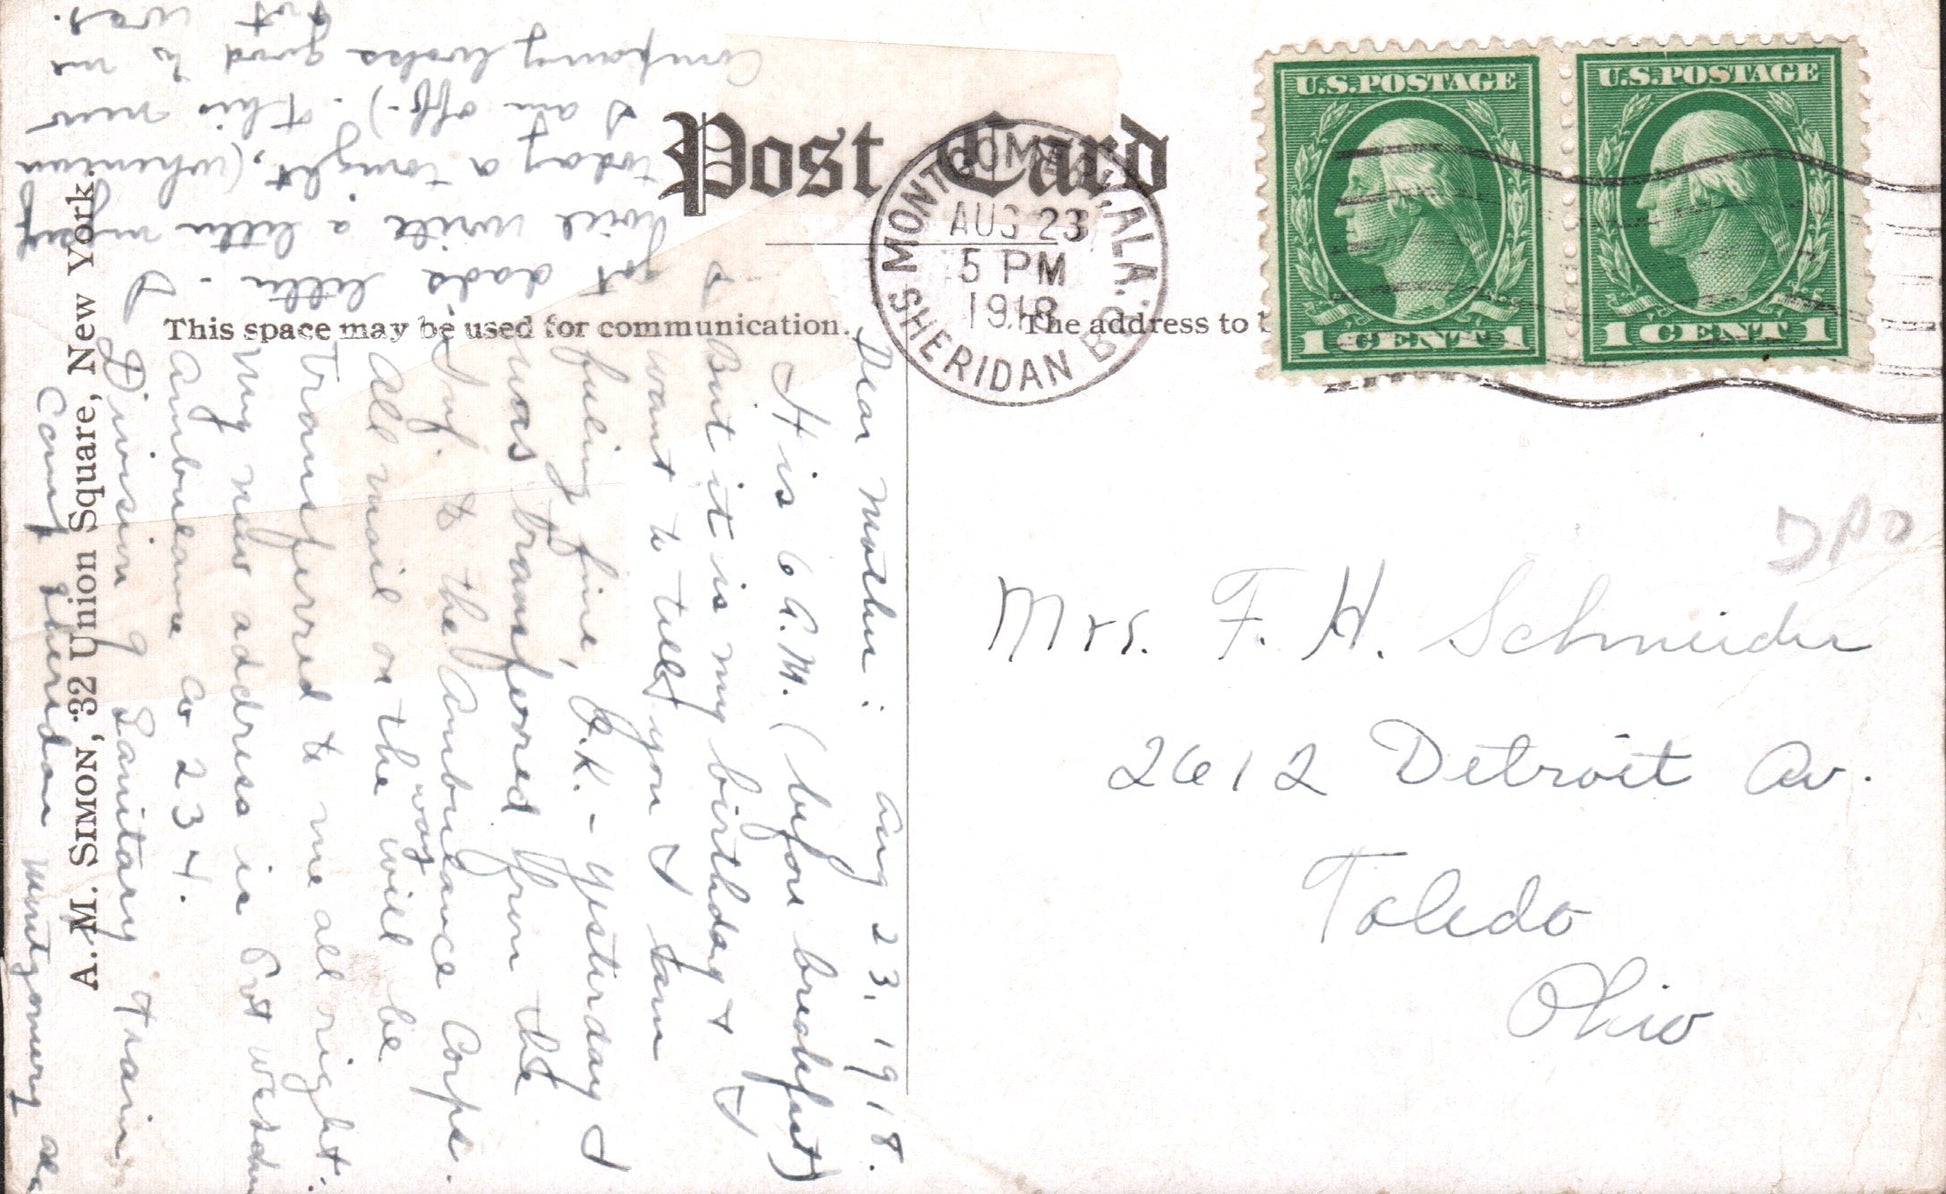 Post Card
MONTGOMERY, ALA.
AUG 23
5 PM
1918
SHERIDAN BR.
U.S. POSTAGE
1 CENT 1
U.S. POSTAGE
1 CENT 1
This space may be used for communication.
The address to
A. M. SIMON, 32 Union Square, New York.
DPO
Mrs. F. H. Schneider
2612 Detroit Av.
Toledo
Ohio
Dear Mother: Aug 23, 1918.
It is 6 A.M. (before breakfast)
But it is my birthday & I
want to tell you I am
feeling fine, O.K. - Yesterday I
was transferred from the
Inf. to the Ambulance Corps.
All mail on the way will be
transferred to me all right.
My new address is Pvt
Ambulance Co 234.
Division of Sanitary Train
Camp Sheridan Montgomery Ala
I got dads letter. I
will write a letter myself
today or tonight, (when
I am off.) This new
Company looks good to me
was.